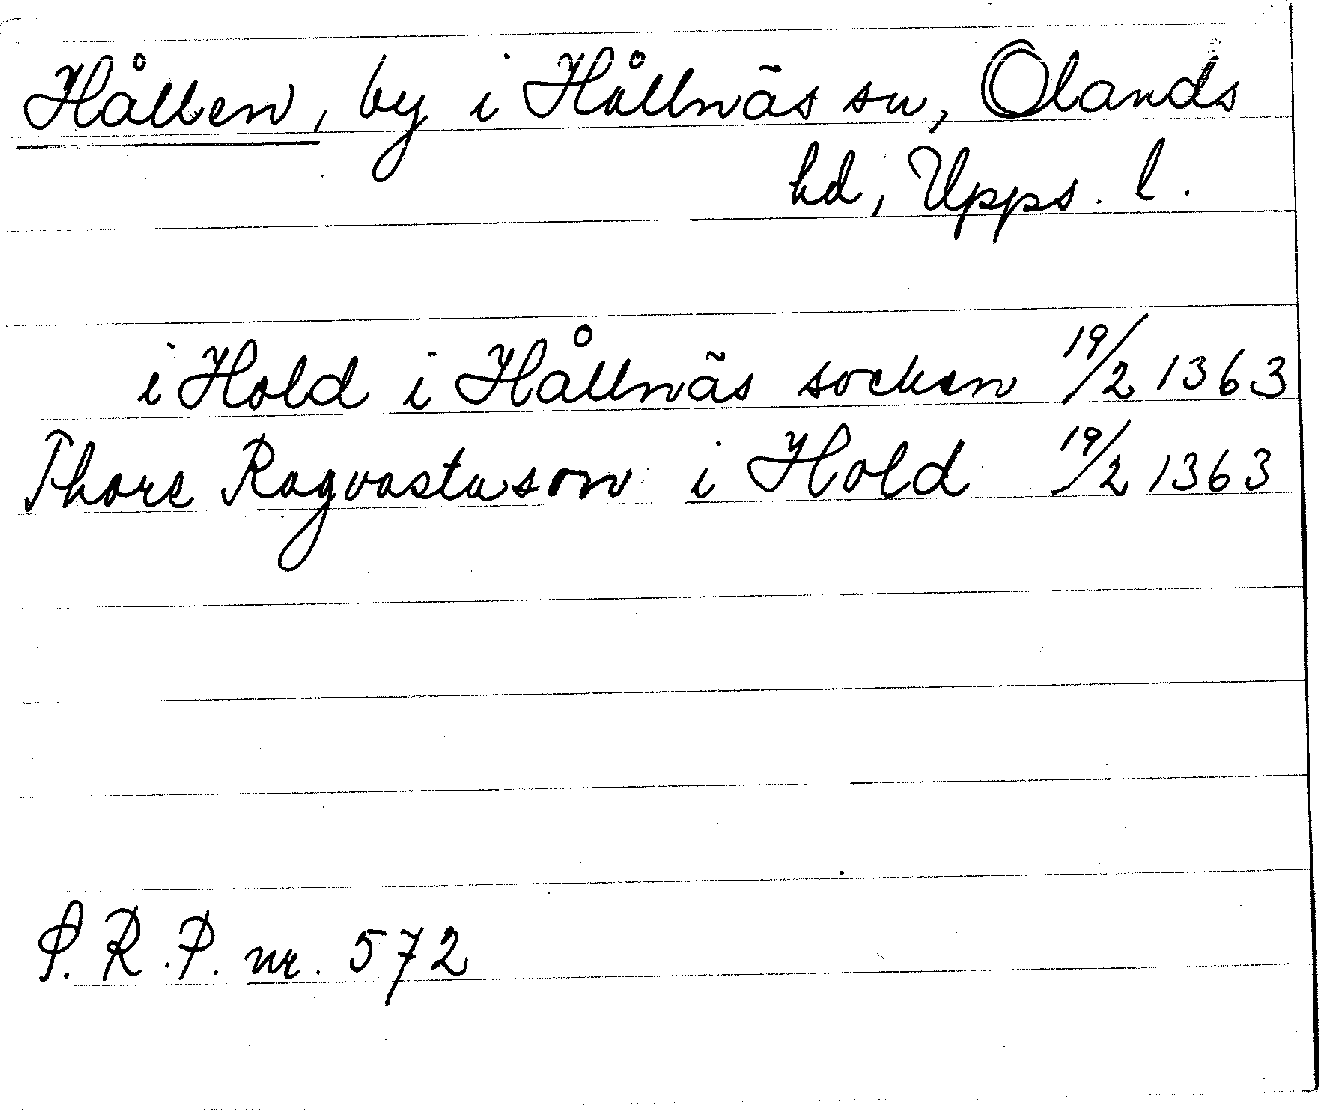 Hållen, by i Hållnäs sn, Olands
hd, Upps. l.
i Hold i Hållnäs socken 19/2 1363
Thore Ragvastason i Hold 19/2 1363
S.R.P. nr. 572